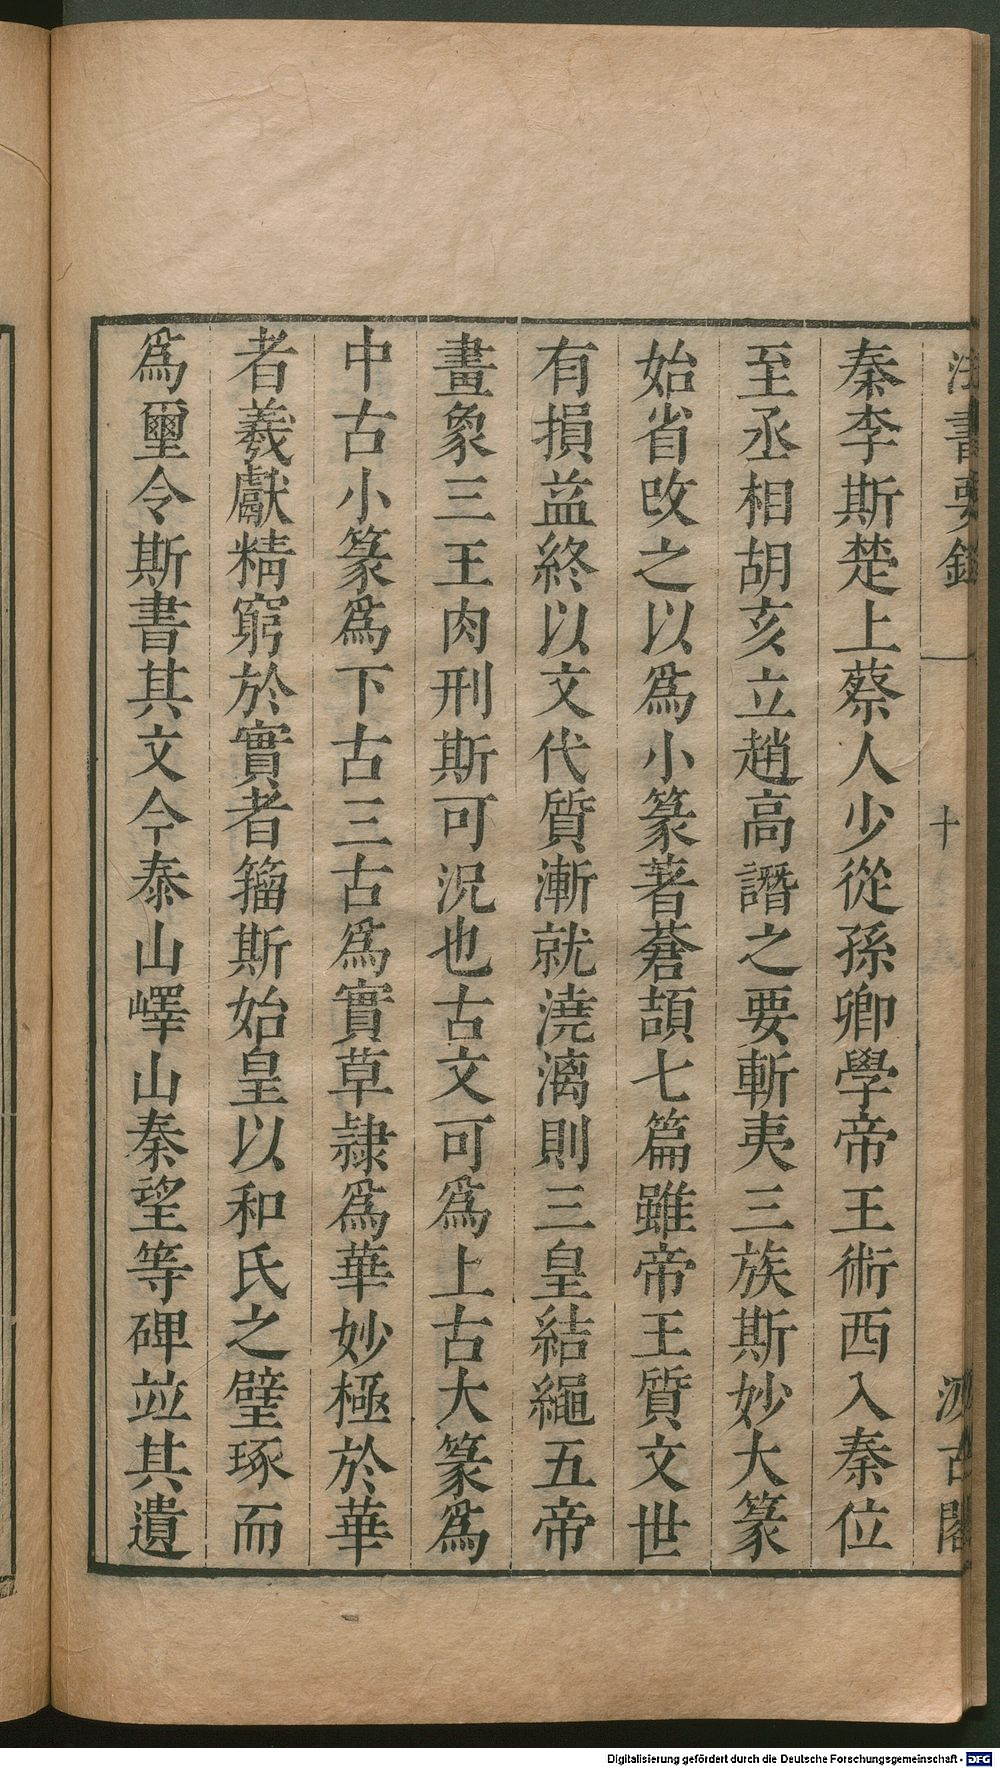 法書要錄
十
汲古閣
秦李斯楚上蔡人少從孫卿學帝王術西入秦位
至丞相胡亥立趙高譖之要斬夷三族斯妙大篆
始省改之以爲小篆著蒼頡七篇雖帝王質文世
有損益終以文代質漸就澆漓則三皇結繩五帝
畫象三王肉刑斯可況也古文可爲上古大篆爲
中古小篆爲下古三古爲實草隷爲華妙極於華
者羲獻精窮於實者籀斯始皇以和氏之璧琢而
爲璽令斯書其文今泰山嶧山秦望等碑竝其遺
Digitalisierung gefördert durch die Deutsche Forschungsgemeinschaft - DFG